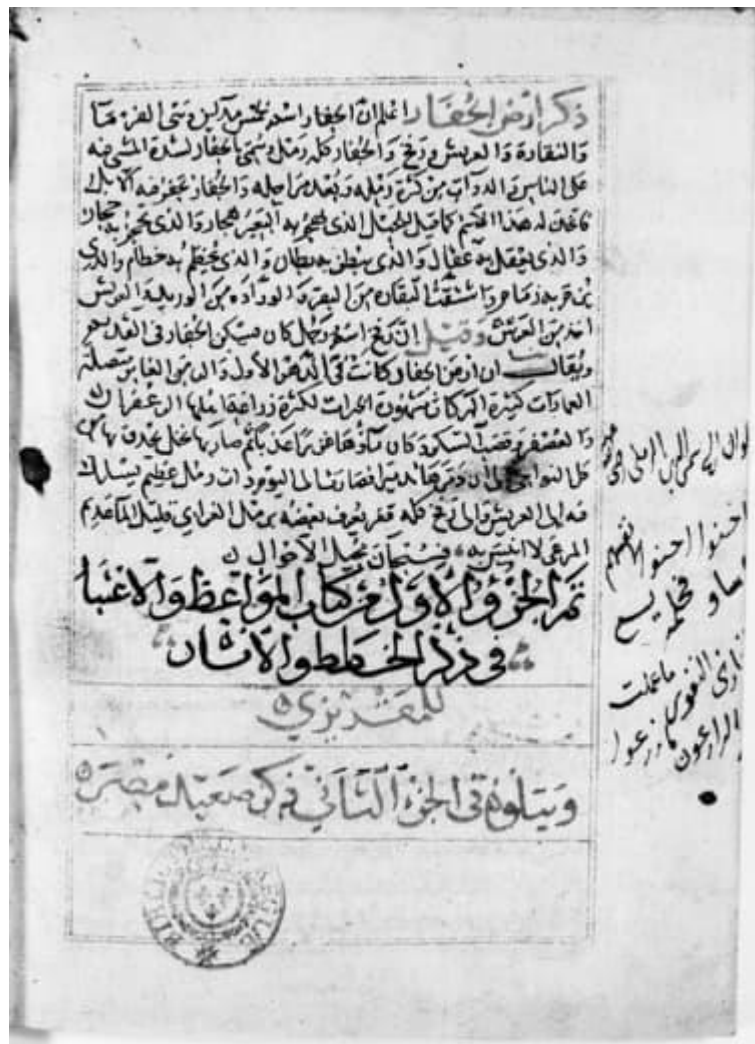 ذكر ارض الجفار اعلم ان الجفار اسم لخمس مداين وهى الفرما
والبقارة والورادة والعريش ورفح والجفار كله رمل وسمى الجفار لشدة المشى فيه
على الناس والدواب من كثرة رمله وبعد مراحله والجفار تجفر فيه الابل
فاتخذ له هذا الاسم كما قيل للحبل الذى يهجر به البعير هجار والذى يحجر به حجار
والذى يعقل به عقال والذى يبطن به بطان والذى يخطم به خطام والذى
يزم به زمام واشتقت البقارة من البقر والورادة من الوريد والعريش
اخذ من العرش وقيل ان رفح اسم رجل كان يسكن الجفار فى القديم
ويقال ان ارض الجفار كانت فى الدهر الاول والزمن الغابر متصلة
العمارات كثيرة البركات مشهورة بالخيرات لكثرة زراعة اهلها الزعفران
والعصفر وقصب السكر وكان ماؤها غزيرا عذبا ثم صار بها نخل يحدق بها من
كل النواحى الى ان دمرها الله تدميرا فصارت الى اليوم ذات رمل عظيم يسلك
فيه الى العريش والى رفح كله قفر يعرف بعضه برمل الغرابى قليل الماء عديم
المرعى لا انيس به فسبحان محيل الاحوال
تم الجزؤ الاول من كتاب المواعظ والاعتبار
فى ذكر الخطط والاثار
للمقريزى
ويتلوه فى الجزء الثانى ذكر صعيد مصر
احسنوا احسنوا
ما عملت